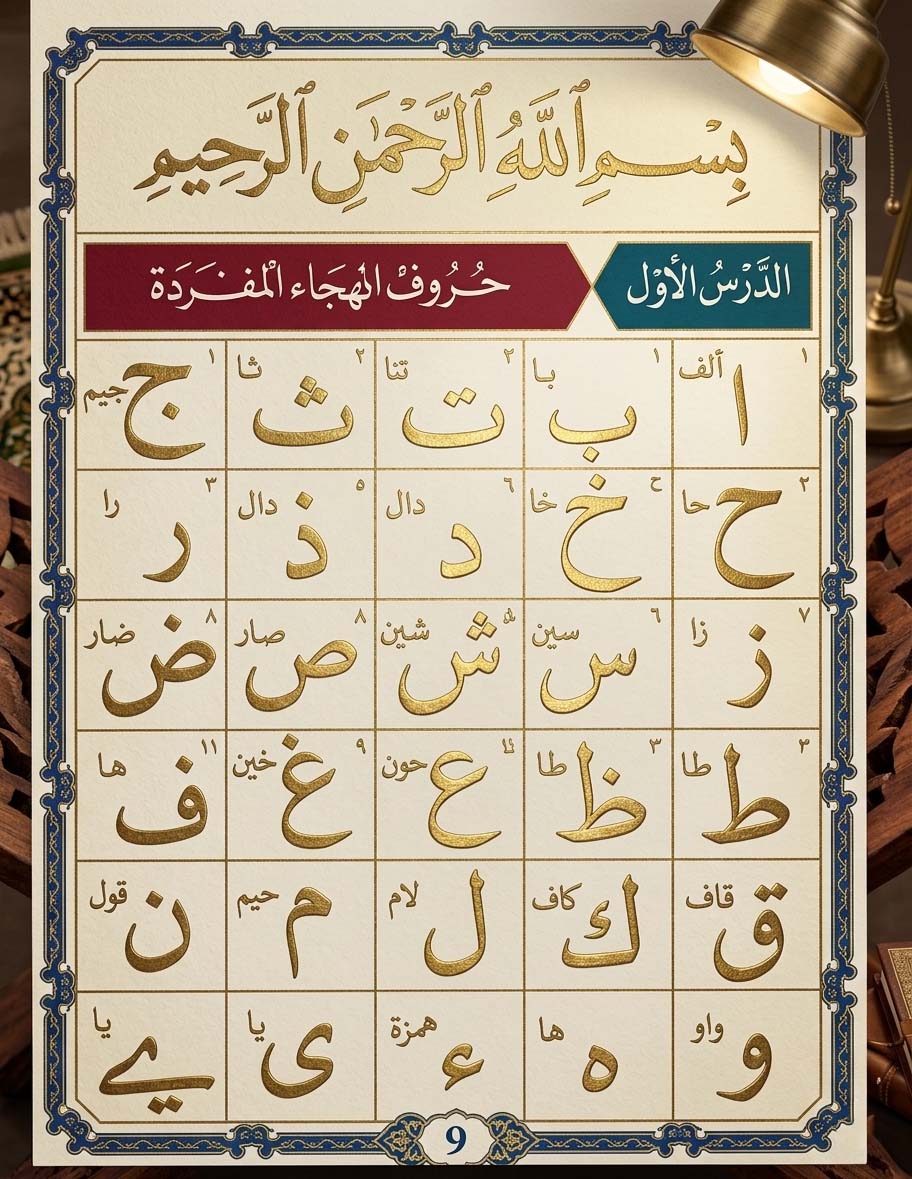 بِسْمِ ٱللَّهِ ٱلرَّحْمَٰنِ ٱلرَّحِيمِ
الدَّرْسُ الْأَوْل حُرُوفْ الْهِجَاء الْمفْرَدَة
١ ألف ا ١ با ب ٢ تنا ت ٢ ثا ث ١ جيم ج
٢ حا ح ح خا خ ٦ دال د ٥ دال ذ ٣ را ر
٧ زا ز ٦ سين س شين ش ٨ صار ص ٨ ضار ض
٢ طا ط ٣ طا ظ حون ع ٩ خين غ ١١ ها ف
قاف ق كاف ك لام ل حيم م قول ن
واو و ها ه همزة ء يا ى يا ے
9